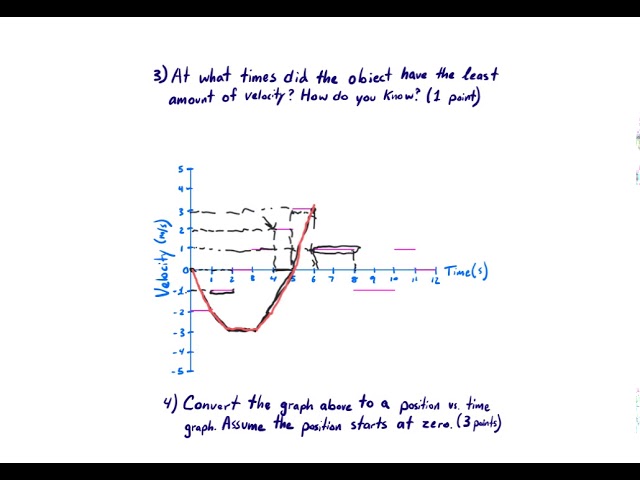 3) At what times did the object have the least
amount of velocity? How do you know? (1 point)
5
4
3
2
1
0
-1
-2
-3
-4
-5
Velocity (m/s)
1 2 3 4 5 6 7 8 9 10 11 12
Time(s)
4) Convert the graph above to a position vs. time
graph. Assume the position starts at zero. (3 points)